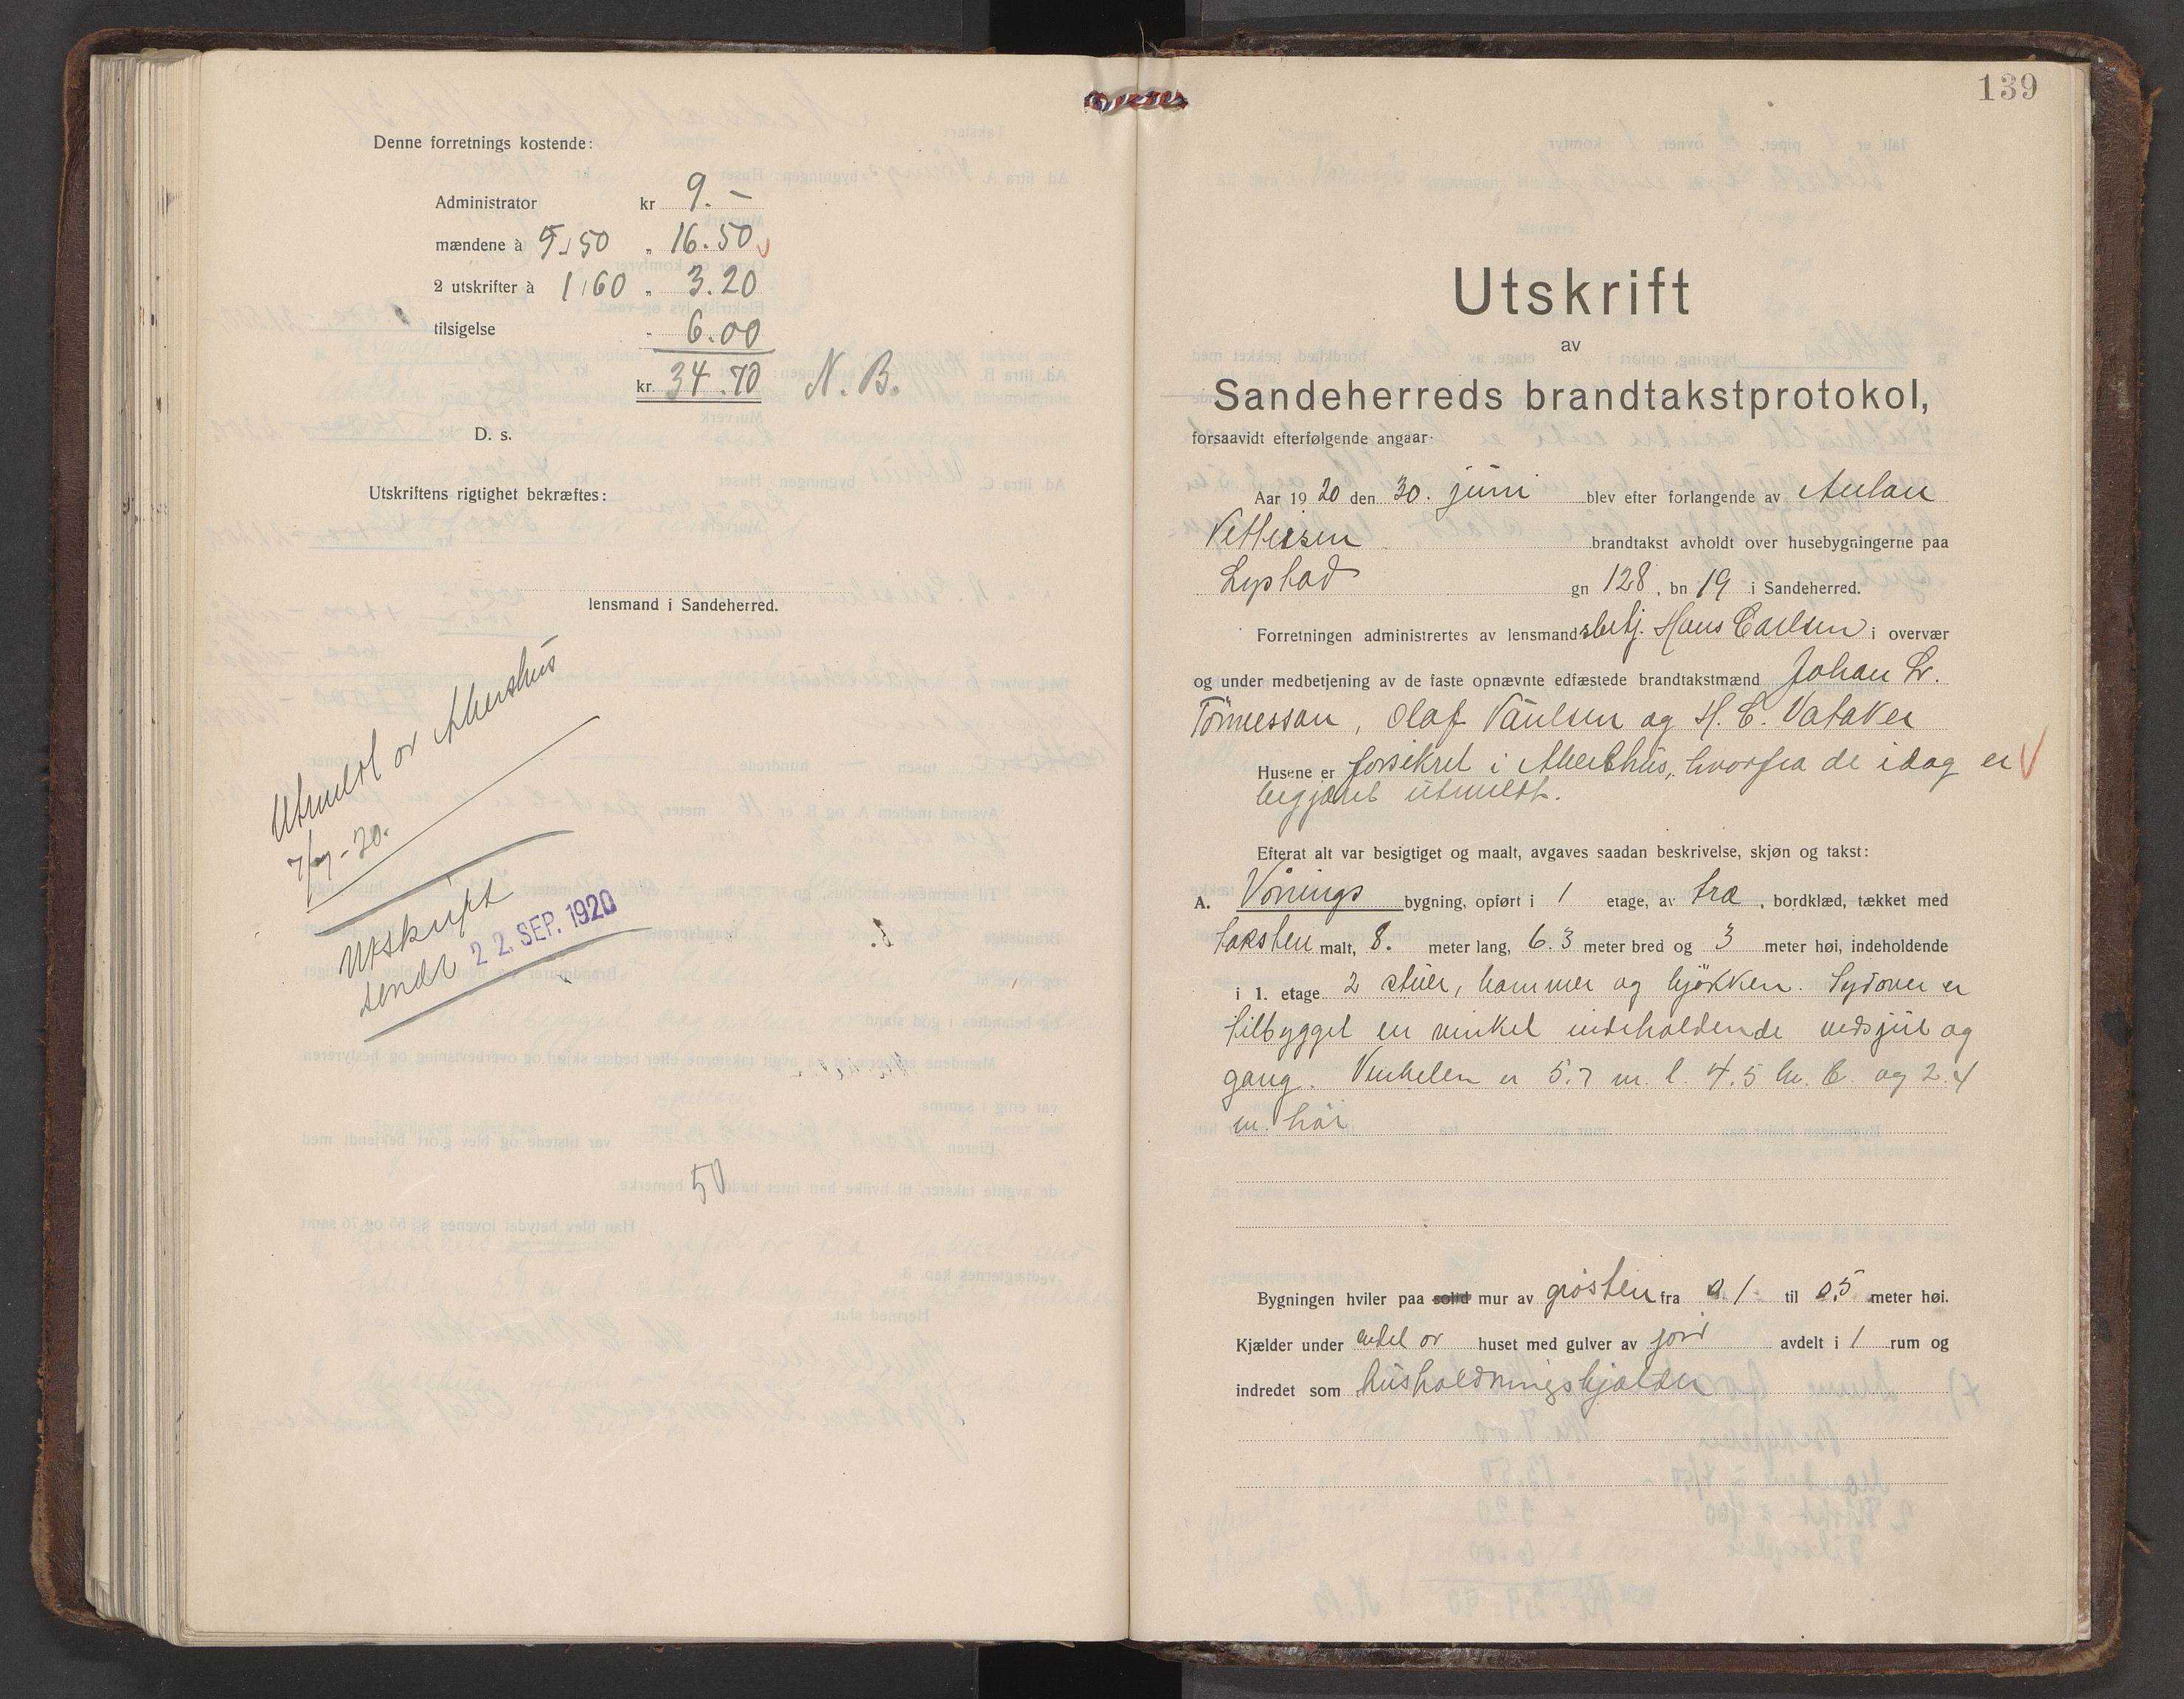 Denne forretnings kostende:
Administrator kr 9.–
mændene à 5,50 „ 16.50
2 utskrifter à 1,60 „ 3.20
tilsigelse - 6.00
kr. 34.70 N. B.
D. s.
Utskriftens rigtighet bekræftes:
lensmand i Sandeherred.
Utmeldt av Akershus
7/7-20.
Utskrift
sendt 22. SEP. 1920
50
139
Utskrift
av
Sandeherreds brandtakstprotokol,
forsaavidt efterfølgende angaar·
Aar 1920 den 30. juni blev efter forlangende av Anton
Pettersen brandtakst avholdt over husebygningerne paa
Lystad gn 128, bn 19 i Sandeherred.
Forretningen administrertes av lensmandsbetj. Hans Carlsen i overvær
og under medbetjening av de faste opnævnte edfæstede brandtakstmænd Johan Lr.
Tønnesson, Olaf Paulsen og H. C. Vataker
Husene er forsikret i Akershus, hvorfra de idag er
begjært utmeldt.
Efterat alt var besigtiget og maalt, avgaves saadan beskrivelse, skjøn og takst:
A. Vånings bygning, opført i 1 etage, av træ, bordklæd, tækket med
taksten malt, 8. meter lang, 6.3 meter bred og 3 meter høi, indeholdende
i 1. etage 2 stuer, kammer og kjøkken. Sydover er
tilbygget en vinkel indeholdende vedskjul og
gang. Vinkelen er 5.7 m. l 4.5 m. b. og 2.4
m. høi
Bygningen hviler paa solid mur av gråsten fra 0.1 til 0.5 meter høi.
Kjælder under endel av huset med gulver av jord avdelt i 1 rum og
indredet som husholdningskjælder